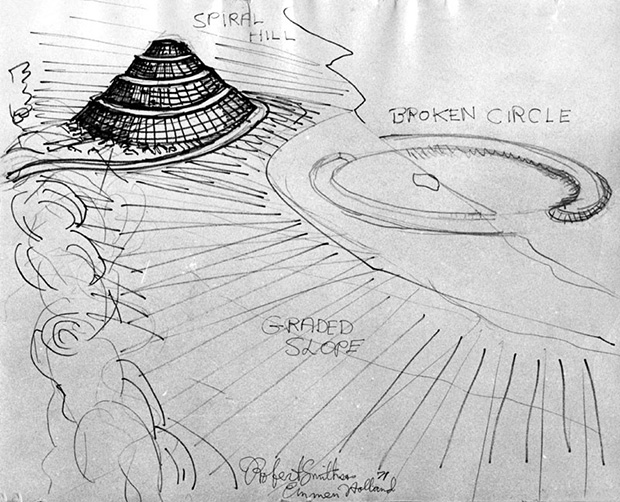 SPIRAL
HILL
BROKEN CIRCLE
GRADED
SLOPE
Robert Smithson '71
Emmen Holland